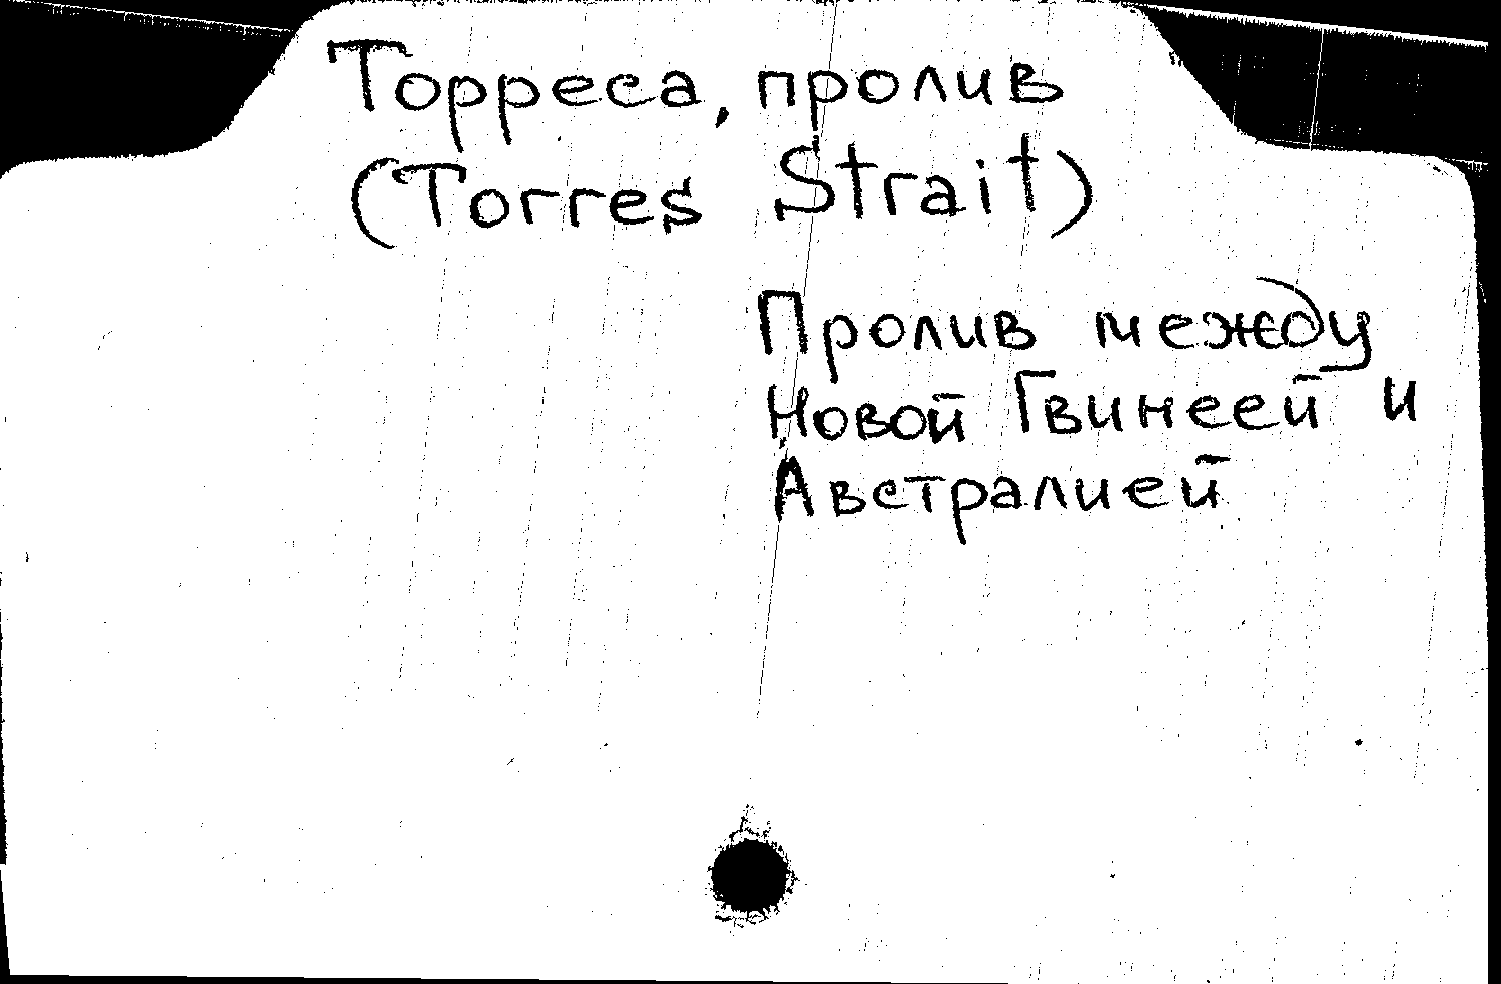 Торреса, пролив
(Torres Strait)
Пролив между
Новой Гвинеей и
Австралией